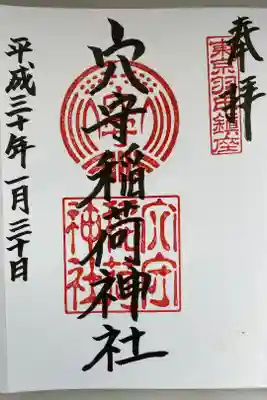 奉拝
東京羽田鎮座
穴守稲荷神社
穴守稲荷神社
平成三十年一月三十日